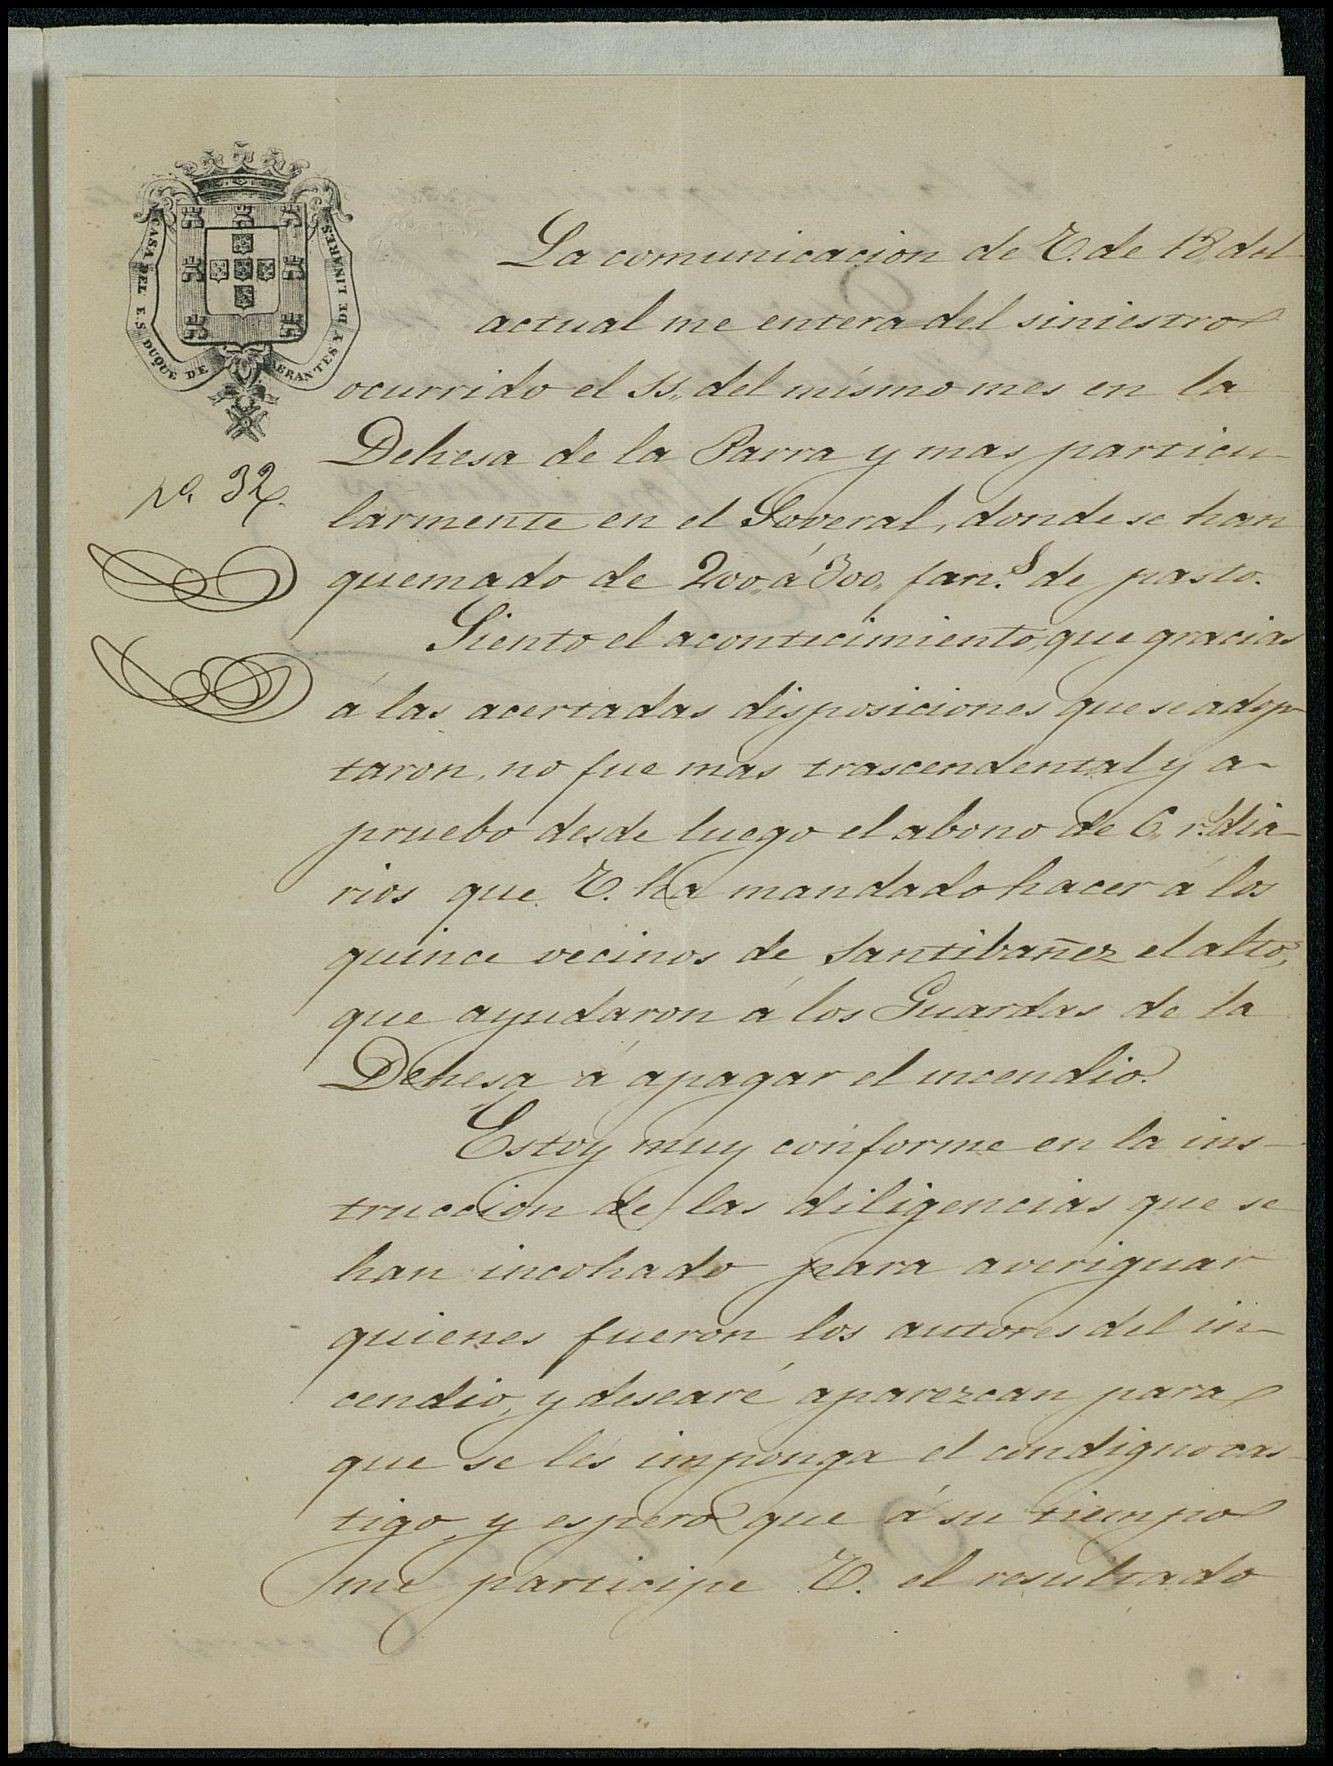 CASA DEL E. S. DUQUE DE ABRANTES Y DE LINARES
Nº 32.
La comunicacion de V. de 18, del
actual me entera del siniestro
ocurrido el 15, del mismo mes en la
Dehesa de la Parra y mas particu-
larmente en el Soveral, donde se han
quemado de 200, á 300, fan.s de pasto.
Siento el aconticimiento, que gracias
á las acertadas disposiciones que se adop-
taron, no fue mas trascendental y a-
pruebo desde luego el abono de 6, r.s dia-
rios que V. ha mandado hacer á los
quince vecinos de Santibañez el alto,
que ayudaron á los Guardas de la
Dehesa á apagar el incendio.
Estoy muy conforme en la ins-
truccion de las diligencias que se
han incohado para averiguar
quienes fueron los autores del in-
cendio, y desearé aparezcan para
que se les imponga el condigno cas-
tigo, y espero que á su tiempo
me participe V. el resultado